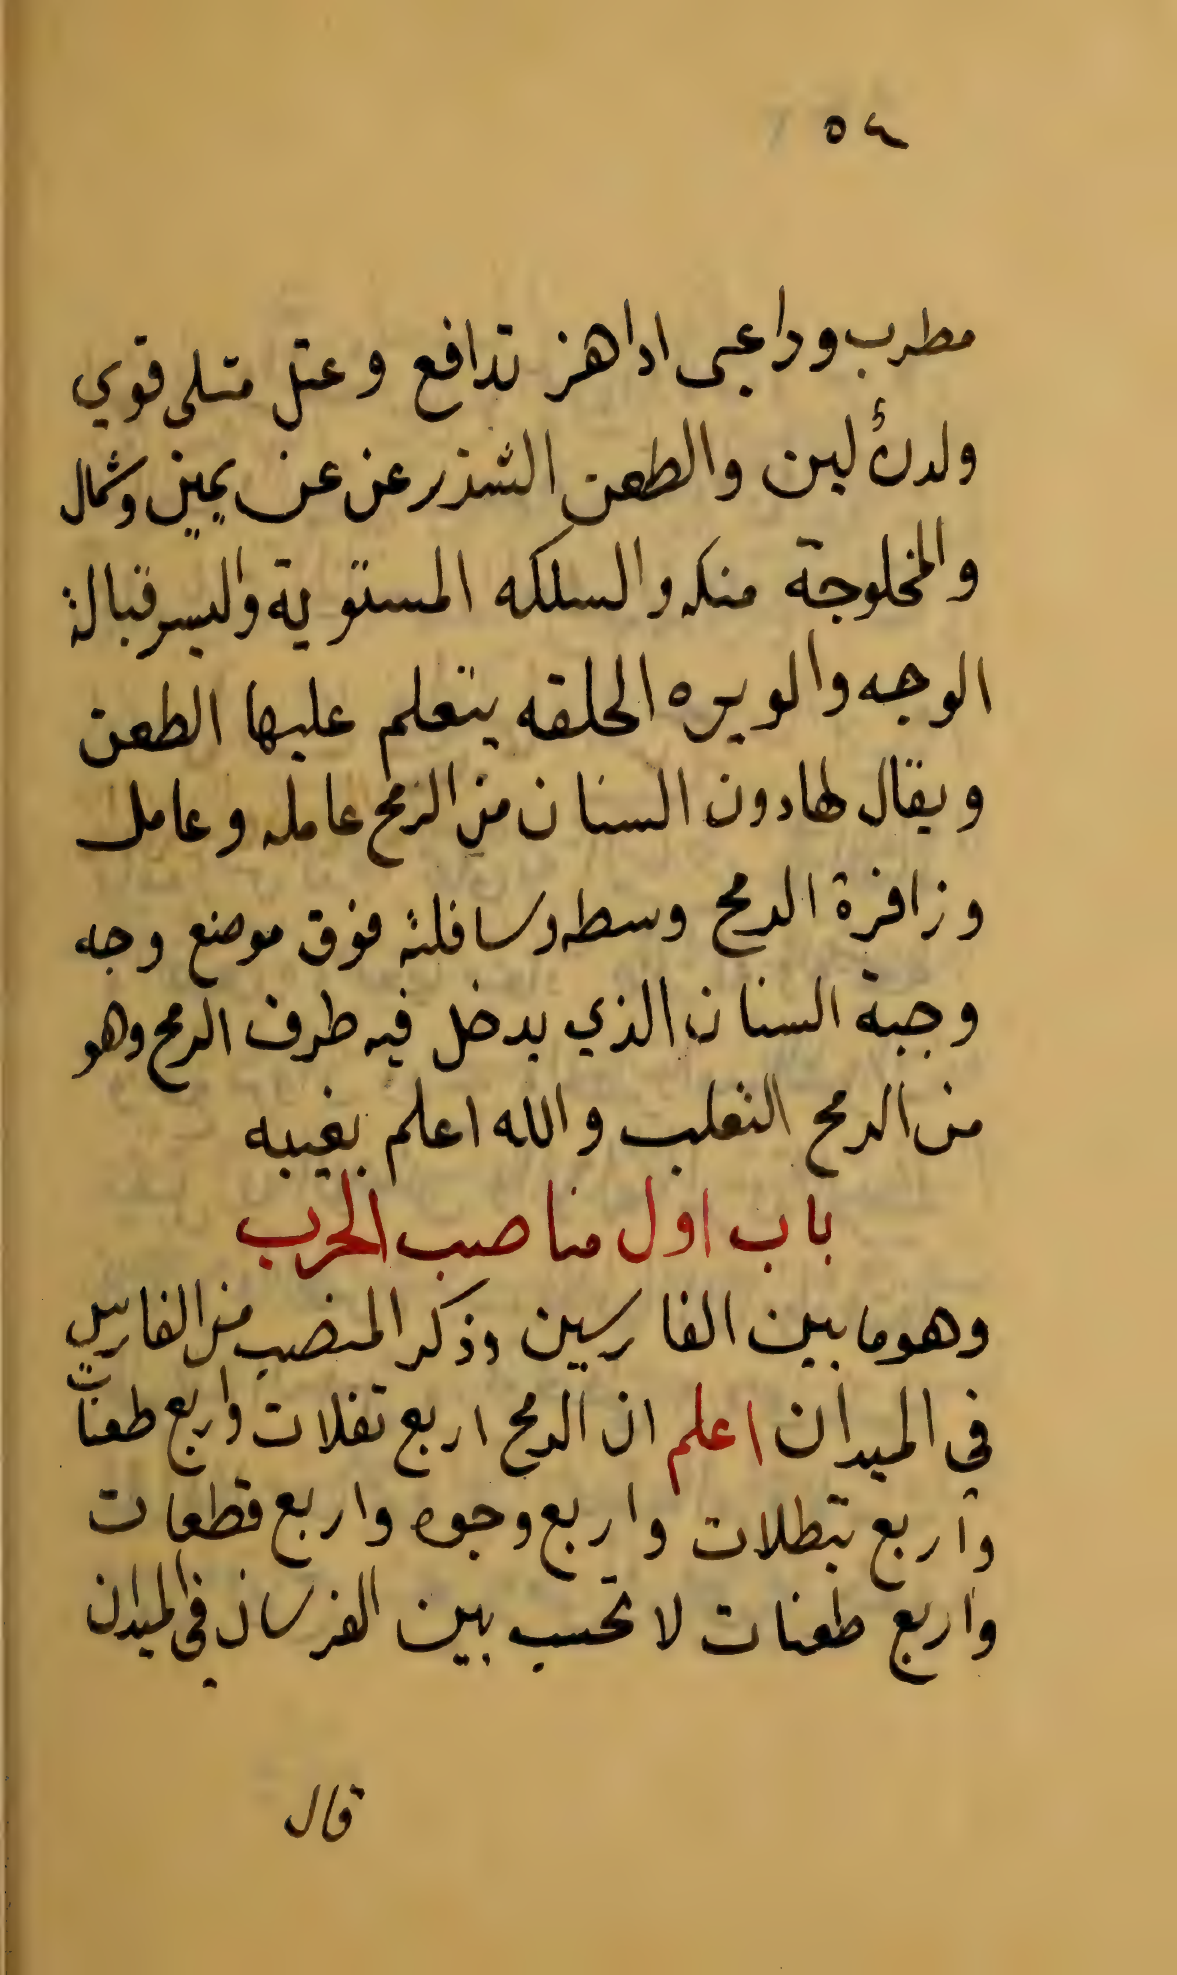 ٥٤
مطرب وداعبى اداهز تدافع وعتل متلى قوي
ولدن لين والطعن الشذر عن عن يمين وشمال
والمخلوجة منكه والسلكه المستوية واليسر قبالة
الوجه والويره الحلقه يتعلم عليها الطعن
ويقال لهادون السنان من الرمح عامله وعامل
وزافرة الرمح وسطه وسافلته فوق موضع وجه
وجبة السنان الذي يدخل فيه طرف الرمح وهو
من الرمح الثعلب والله اعلم بغيبه
باب اول مناصب الحرب
وهو ما بين الفارسين وذكر المنصب من الفارس
في الميدان اعلم ان الرمح اربع نفلات واربع طعنات
واربع تبطلات واربع وجوه واربع قطعات
واربع طعنات لا تحسب بين الفرسان في الميدان
قال